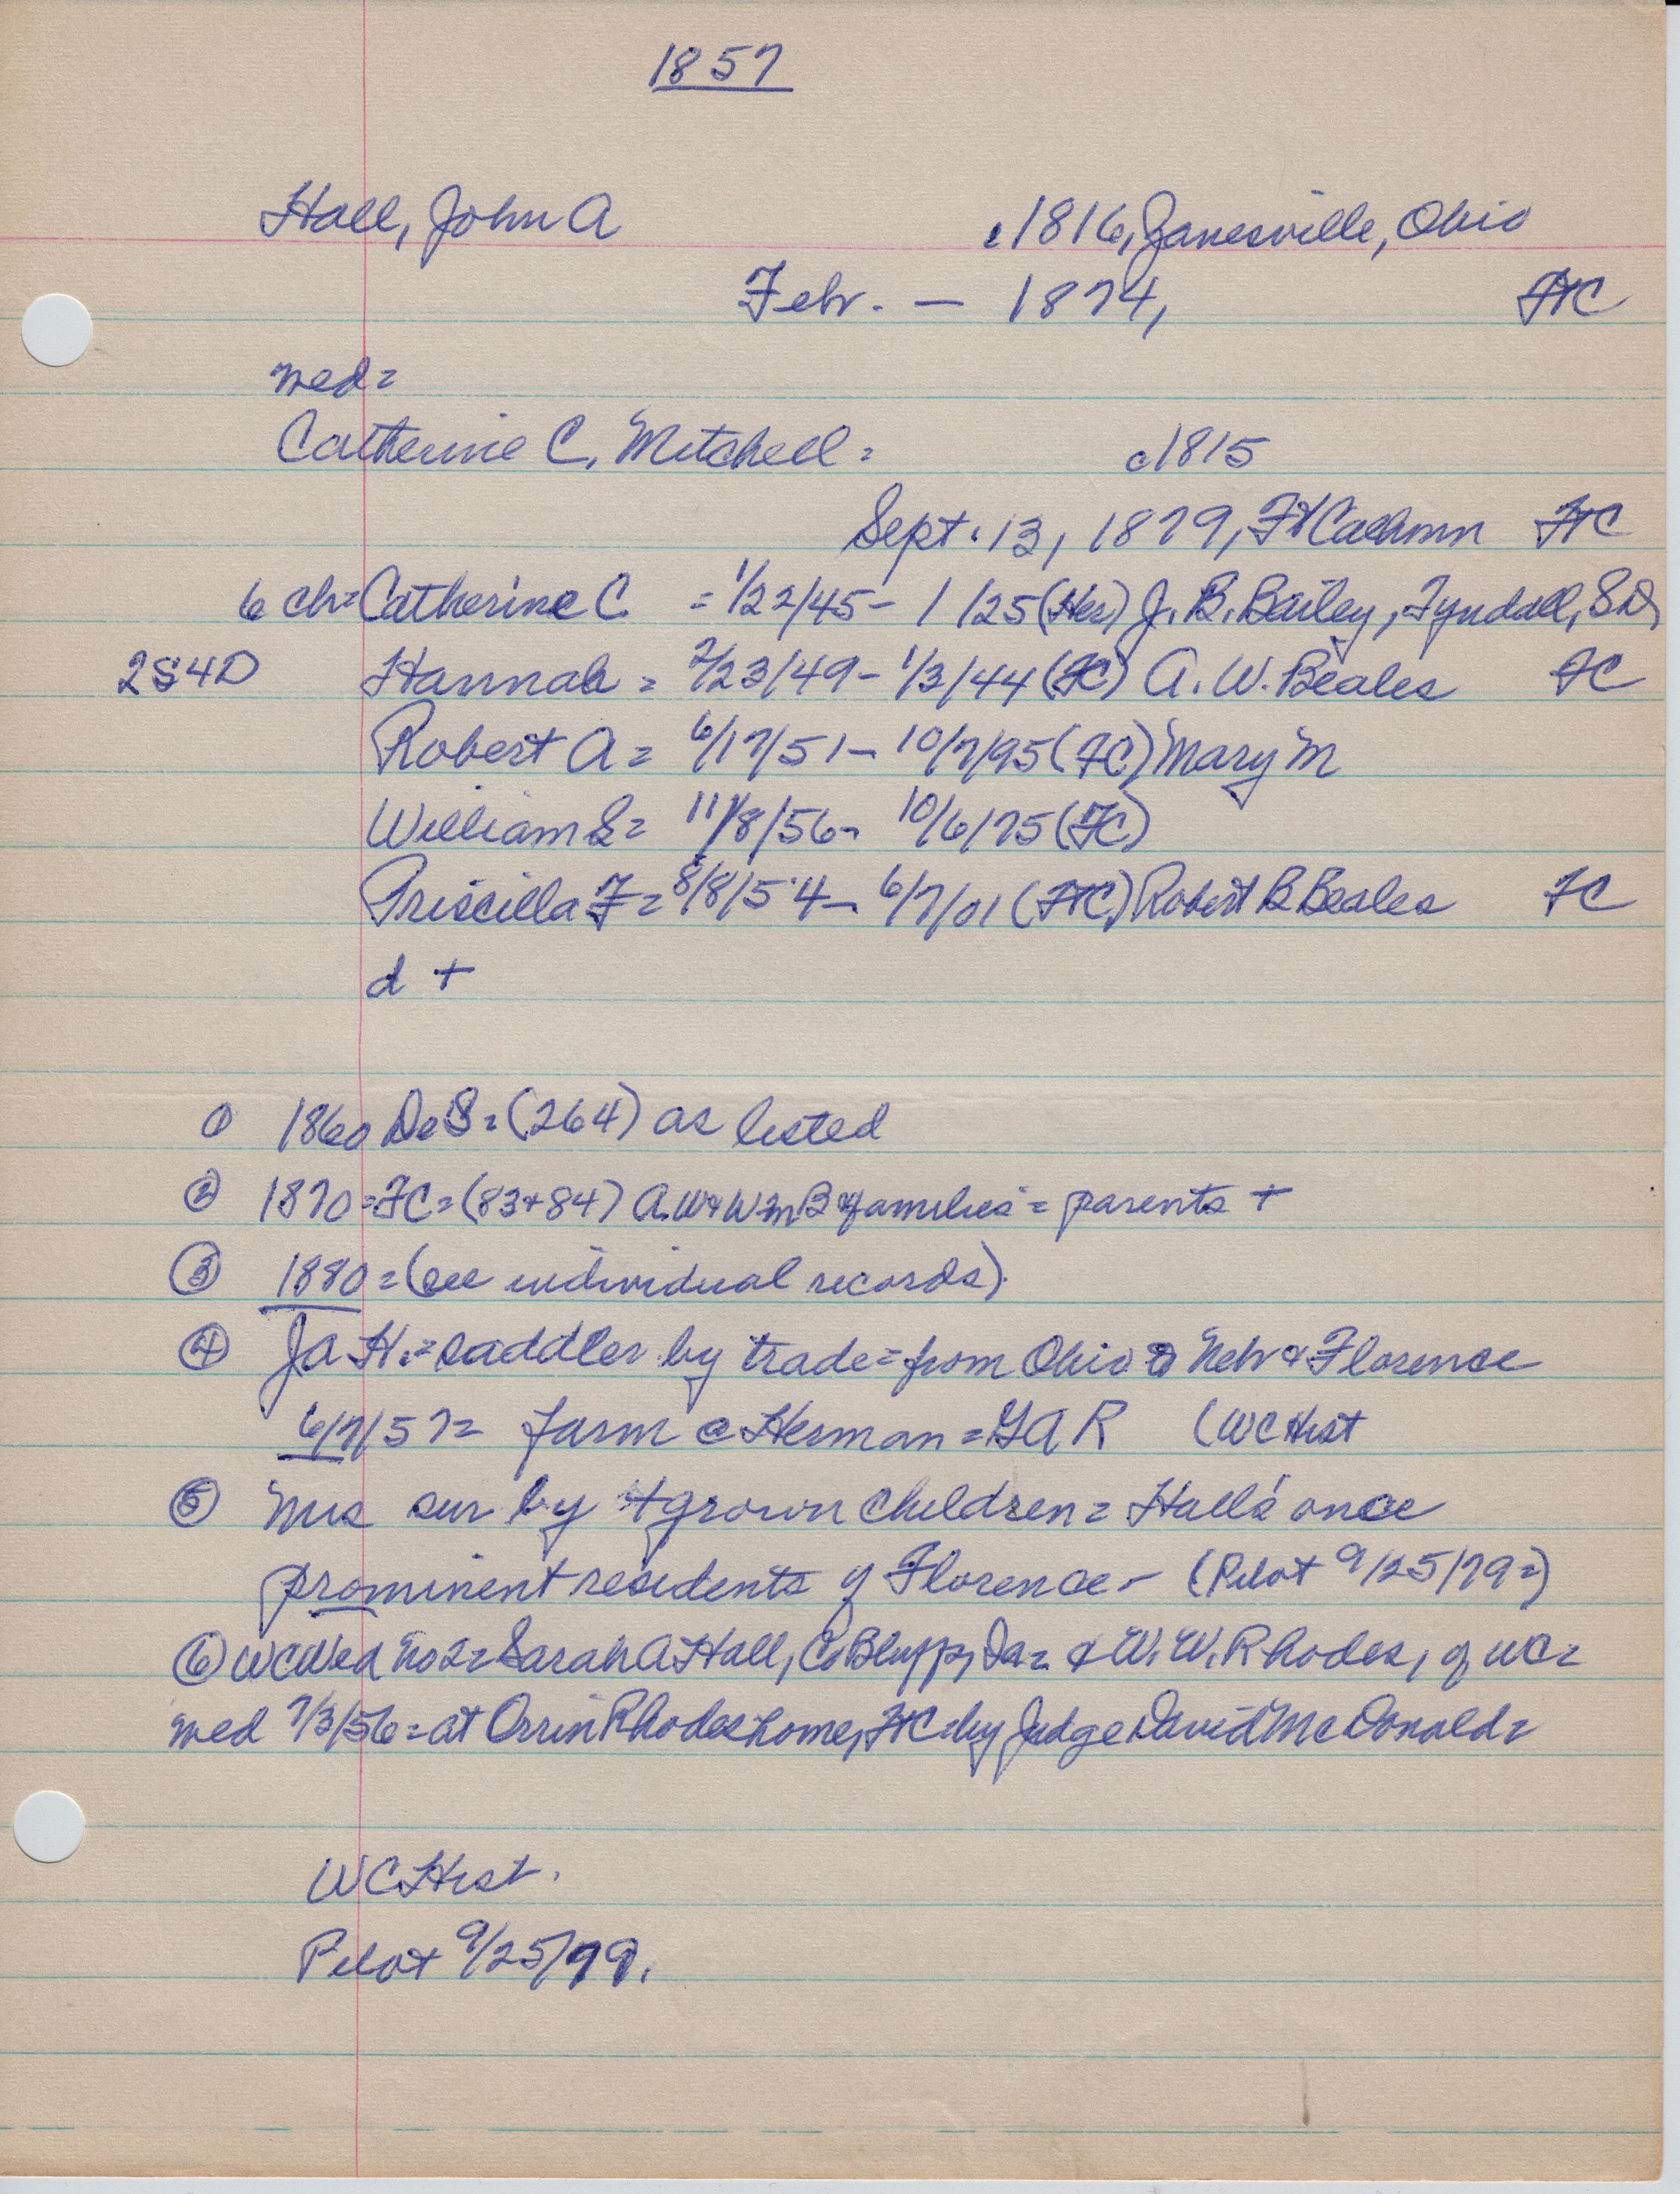 1857
Hall, John A c1816, Zanesville, Ohio
Febr. — 1874, FtC
wed=
Catherine C. Mitchell = c1815
Sept. 13, 1879, Ft Calhoun FtC
6 ch= Catherine C = 1/22/45 - 1 /25 (Her) J. B. Bailey, Tyndall, SD,
2S4D Hannah = 2/23/49 - 1/3/44 (FC) A. W. Beales FC
Robert A = 6/17/51 - 10/7/95 (FC) Mary M
William S = 11/8/56 - 10/6/75 (FC)
Priscilla F = 8/8/54 - 6/7/01 (FtC) Robert B Beales FC
d +
① 1860 DeS = (264) as listed
② 1870 = FC = (83+84) A.W + Wm B families = parents +
③ 1880 = (see individual records).
④ JaH. = saddler by trade = from Ohio to Nebr & Florence
6/7/57 = farm @ Herman = GAR (WC Hist
⑤ Mrs sur by 4 grown children = Hall's once
prominent residents of Florence - (Pilot 9/25/79 =)
⑥ WC Wed No 2 = Sarah A Hall, Co Bluffs, Ia = & W. W. Rhodes, of WC =
wed 7/3/56 = at Orrin Rhodes home, FtC = by Judge David McDonald =
WC Hist.
Pilot 9/25/79.